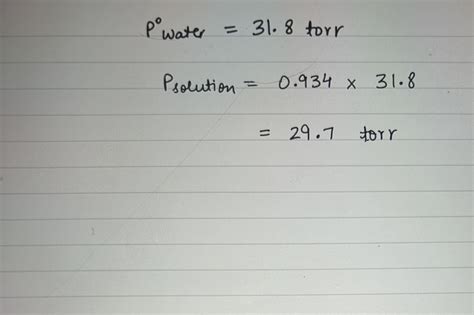 P°water = 31.8 torr
Psolution = 0.934 x 31.8
= 29.7 torr